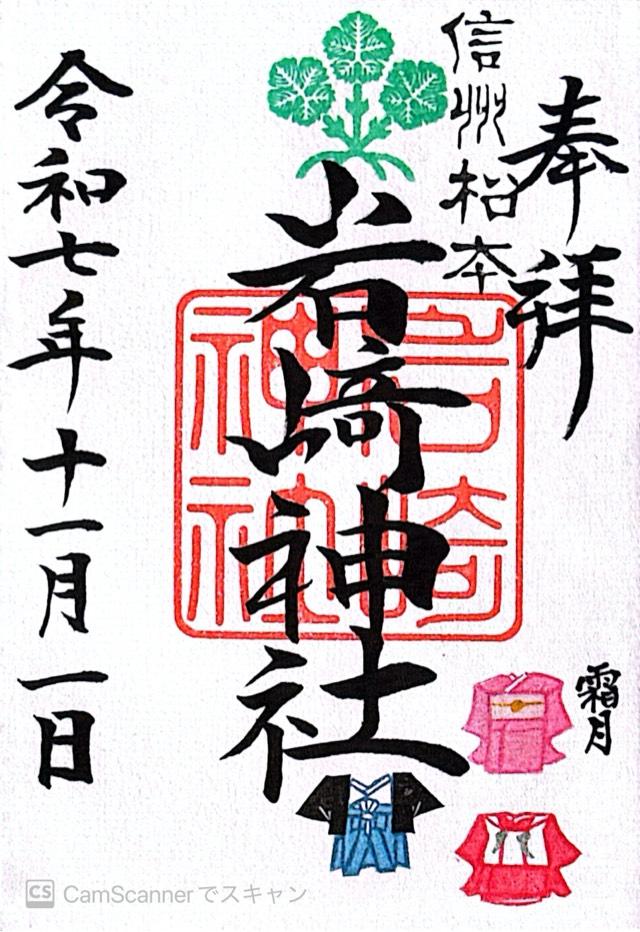 奉拝
信州松本
岩崎神社
霜月
令和七年十一月一日
CS CamScannerでスキャン